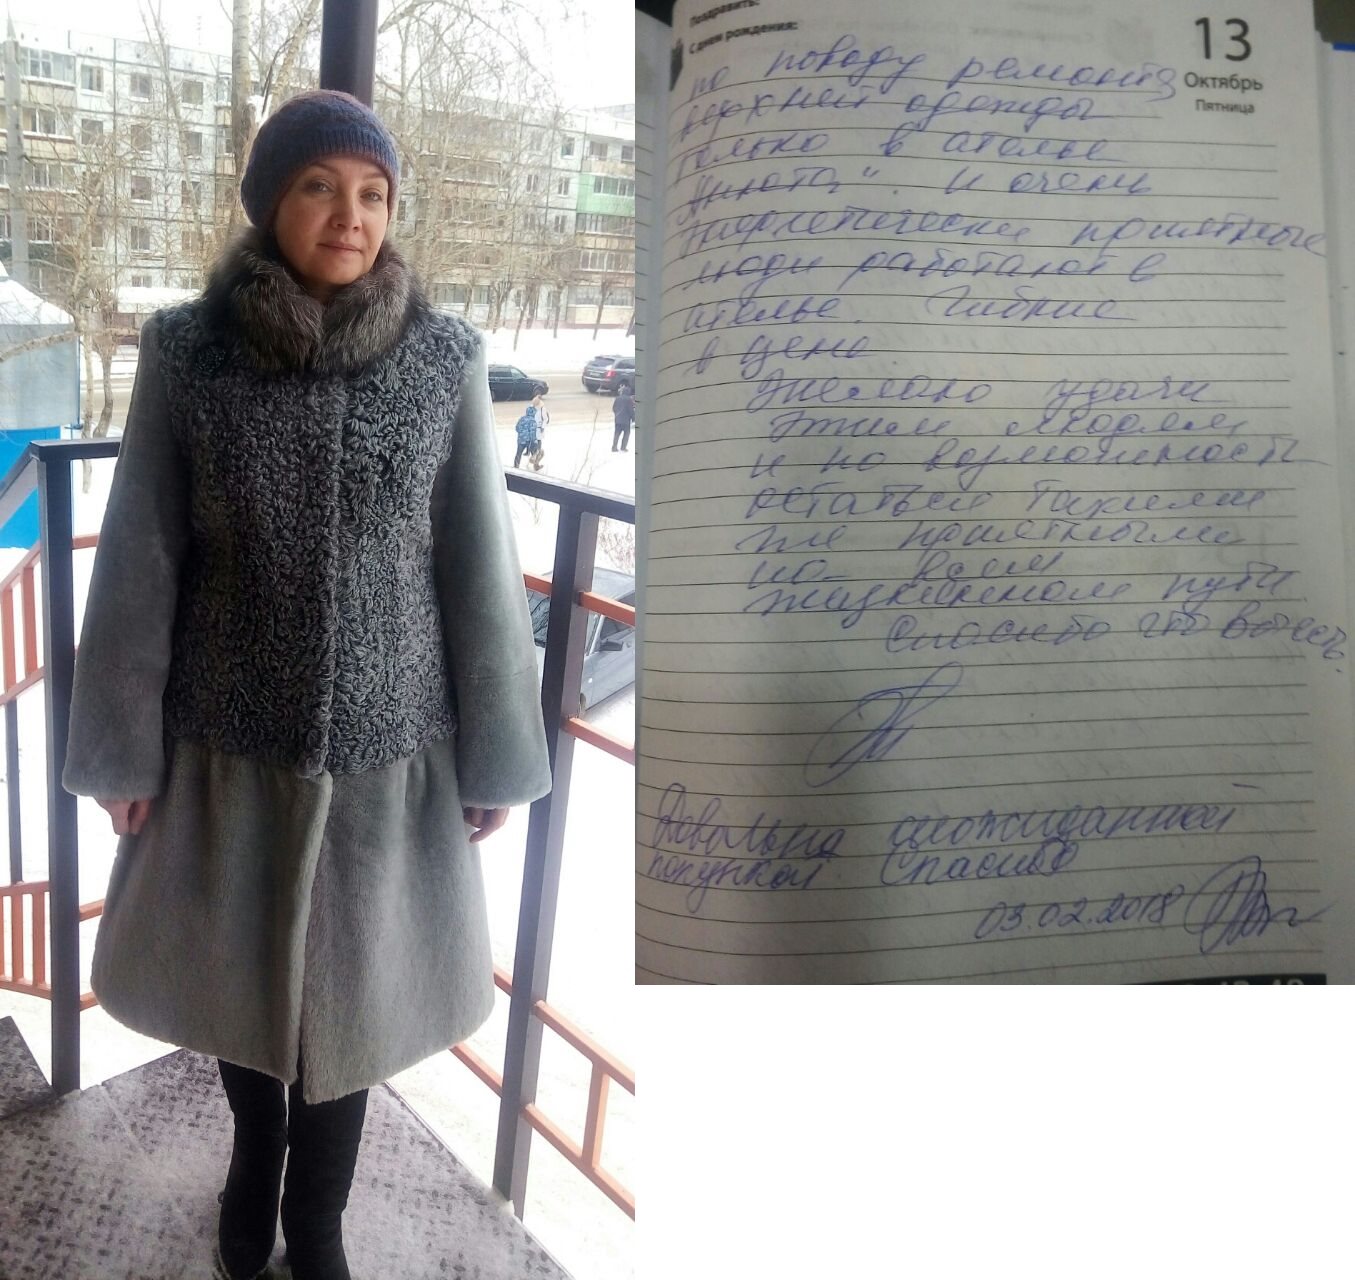 Поздравить:
С днем рождения:
13
Октябрь
Пятница
по поводу ремонта
верхней одежды
только в ателье
Анюта". И очень
энергетически приятные
люди работают в
ателье. Гибкие
в цене.
Желаю удачи
этим людям
и по возможности
остаться такими
же приятными
на всем
жизненном пути
Спасибо что вы есть.
Довольна неожиданной
покупкой Спасибо
03.02.2018